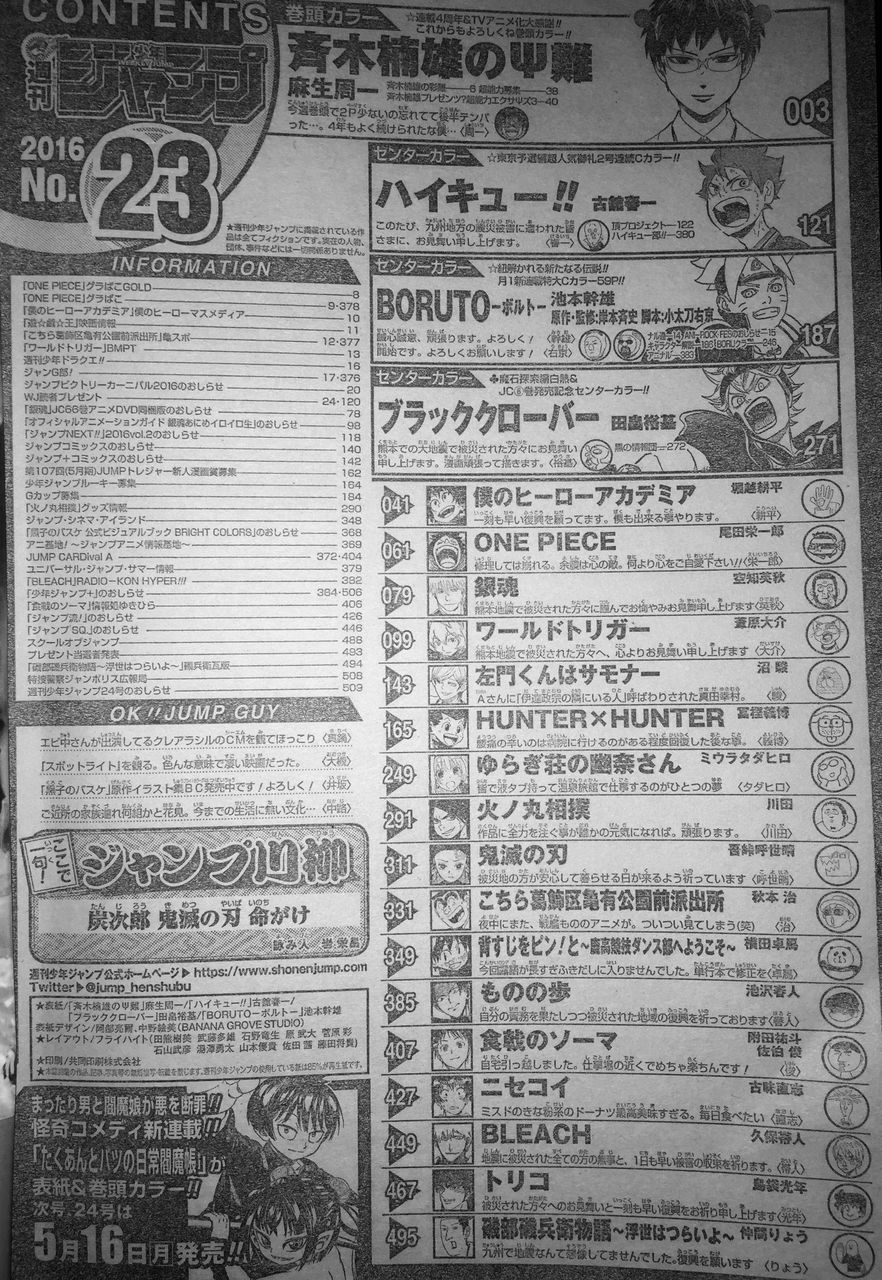 CONTENTS
週刊
少年
ジャンプ
WEEKLY JUMP
2016
No. 23
★週刊少年ジャンプに掲載されている作
品は全てフィクションです。実在の人物、
団体、事件などには一切関係ありません。
巻頭カラー
☆連載4周年&TVアニメ化大感謝!!
これからもよろしくね巻頭カラー!!
斉木楠雄のΨ難
麻生周一
003
今週巻頭で2P少ないの忘れてて後半テンパ
った…。4年もよく続けられたな僕…〈周一〉
センターカラー
☆東京予選編超人気御礼2号連続Cカラー!!
ハイキュー!!
古舘春一
121
このたび、九州地方の震災被害に遭われた皆
さまに、お見舞い申し上げます。〈春一〉
頂プロジェクト―122
ハイキュー部!!―380
センターカラー
☆紐解かれる新たなる伝説!!
月1新連載特大Cカラー59P!!
BORUTO ―ボルト―
池本幹雄
原作・監修:岸本斉史 脚本:小太刀右京
187
誠心誠意、頑張ります。よろしく!〈幹雄〉
開始です。よろしくお願いします!〈右京〉
センターカラー
✤魔石探索編白熱&
JC⑥巻発売記念センターカラー!!
ブラッククローバー
田畠裕基
271
熊本での大地震で被災された方々にお見舞い
申し上げます。漫画頑張って描きます。〈裕基〉
黒の情報団―272
INFORMATION
「ONE PIECE」グラぱこGOLD 8
「ONE PIECE」グラぱこ 9・378
「僕のヒーローアカデミア」僕のヒーローマスメディア 10
「遊☆戯☆王」映画情報 11
「こちら葛飾区亀有公園前派出所」亀スポ 12・377
「ワールドトリガー」BMPT 13
週刊少年ドラクエ!! 16
ジャンG部! 17・376
ジャンプビクトリーカーニバル2016のおしらせ 20
WJ読者プレゼント 24・120
「銀魂」JC66巻アニメDVD同梱版のおしらせ 78
「オフィシャルアニメーションガイド 銀魂あにめイロイロ生」のおしらせ 98
「ジャンプNEXT!!」2016vol.2のおしらせ 118
ジャンプコミックスのおしらせ 140
ジャンプ+コミックスのおしらせ 142
第107回(5月期)JUMPトレジャー新人漫画賞募集 162
少年ジャンプルーキー募集 164
Gカップ募集 184
「火ノ丸相撲」グッズ情報 290
ジャンプ・シネマ・アイランド 348
「黒子のバスケ 公式ビジュアルブック BRIGHT COLORS」のおしらせ 368
アニ基地! ～ジャンプアニメ情報基地～ 369
JUMP CARDival A 372・404
ユニバーサル・ジャンプ・サマー情報 379
「BLEACH」RADIO-KON HYPER!!! 382
「少年ジャンプ+」のおしらせ 384・506
「食戟のソーマ」情報処ゆきひら 406
「ジャンプ流!」のおしらせ 426
「ジャンプ SQ.」のおしらせ 446
スクールオブジャンプ 486
プレゼント当選者発表 493
「磯部磯兵衛物語～浮世はつらいよ～」磯兵衛瓦版 494
特捜警察ジャンポリス広報局 508
週刊少年ジャンプ24号のおしらせ 509
041 僕のヒーローアカデミア 堀越耕平
一刻も早い復興を願ってます。僕も出来る事やります。〈耕平〉
061 ONE PIECE 尾田栄一郎
修理しては崩れる。余震は心の敵。何より心をご自愛下さい!!〈栄一郎〉
079 銀魂 空知英秋
熊本地震で被災された方々に謹んでお悔やみお見舞申し上げます〈英秋〉
099 ワールドトリガー 葦原大介
熊本地震で被災された方々へ、心よりお見舞い申し上げます〈大介〉
143 左門くんはサモナー 沼 駿
Aさんに「伊達政宗の隣にいる人」呼ばわりされた真田幸村。〈駿〉
165 HUNTER×HUNTER 冨樫義博
腰痛の辛いのは病院に行けるのがある程度回復した後な事。〈義博〉
249 ゆらぎ荘の幽奈さん ミウラタダヒロ
皆で液タブ持って温泉旅館で仕事するのがひとつの夢〈タダヒロ〉
291 火ノ丸相撲 川田
作品に全力を注ぐ事が誰かの元気になれば。頑張ります。〈川田〉
311 鬼滅の刃 吾峠呼世晴
被災地の方が安心して暮らせる日が来るよう祈っています〈呼世晴〉
331 こちら葛飾区亀有公園前派出所 秋本 治
夜中にまた、戦艦もののアニメが。ついつい見てしまう(笑)〈治〉
349 背すじをピン!と～鹿高競技ダンス部へようこそ～ 横田卓馬
今回露語が長すぎふきだしに入りませんでした。単行本で修正を〈卓馬〉
385 ものの歩 池沢春人
自分の責務を果たしつつ被災された地域の復興を祈っております〈春人〉
407 食戟のソーマ 附田祐斗
佐伯 俊
自宅引っ越しました。仕事場の近くでめちゃ楽ちんです!〈俊〉
427 ニセコイ 古味直志
ミスドのきな粉系のドーナツ最高美味すぎる。毎日食べたい〈直志〉
449 BLEACH 久保帯人
地震に被災された全ての方の無事と、1日も早い被害の収束を祈ります。〈帯人〉
467 トリコ 島袋光年
被災された方々へのお見舞いと一刻も早い復興をお祈り申し上げます〈光年〉
495 磯部磯兵衛物語～浮世はつらいよ～ 仲間りょう
九州で地震なんて想像してませんでした。復興を願います〈りょう〉
OK!! JUMP GUY
エビ中さんが出演してるクレアラシルのCMを観てほっこり
「スポットライト」を観る。色んな意味で凄い映画だった。〈大槻〉
「黒子のバスケ」原作イラスト集BC発売中です!よろしく!〈井坂〉
ご近所の家族連れ何組かと花見。今までの生活に無い文化…〈中路〉
ここで一句!
ジャンプ川柳
炭次郎 鬼滅の刃 命がけ
詠み人 岩栄昌
週刊少年ジャンプ公式ホームページ▶https://www.shonenjump.com
Twitter▶@jump_henshubu
★表紙/「斉木楠雄のΨ難」麻生周一/「ハイキュー!!」古舘春一/
「ブラッククローバー」田畠裕基/「BORUTO―ボルト―」池本幹雄
表紙デザイン/阿部亮爾、中野絵美(BANANA GROVE STUDIO)
★レイアウト/フライハイト(田熊樹美 武藤多雄 石野竜生 原 武大 菅原 彩
石山武彦 湯澤勇太 山本優貴 佐田 茜 藤田将貴)
★印刷/共同印刷株式会社
まったり男と閻魔娘が悪を断罪!!
怪奇コメディ新連載!!!
「たくあんとバツの日常閻魔帳」が
表紙&巻頭カラー!!
次号、24号は
5月16日月発売!!